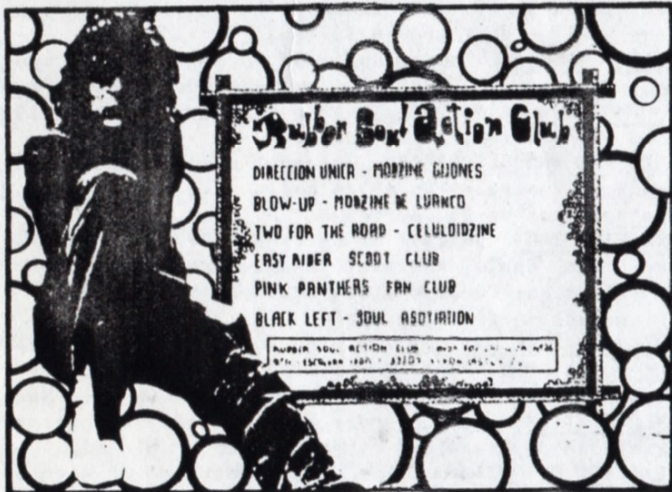 Rubber Soul Action Club
DIRECCION UNICA - MODZINE GIJONES
BLOW-UP - MODZINE DE LUANCO
TWO FOR THE ROAD - CELULOIDZINE
EASY RIDER SCOOT CLUB
PINK PANTHERS FAN CLUB
BLACK LEFT - SOUL ASOTIATION
RUBBER SOUL ACTION CLUB